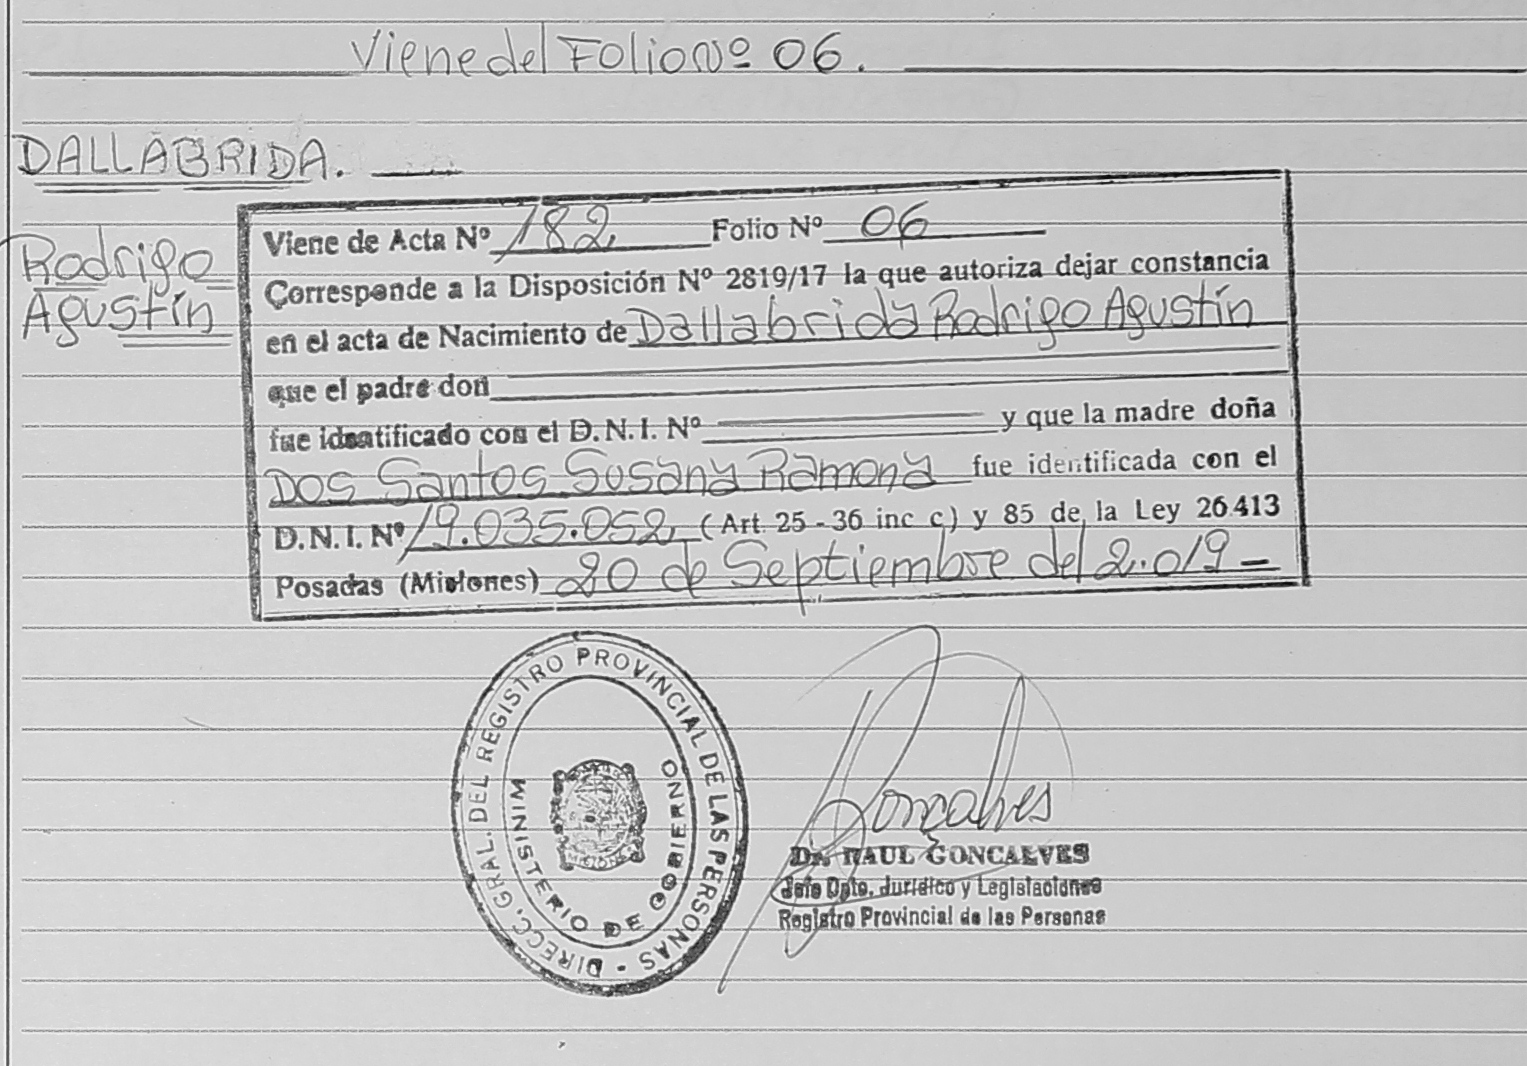 Viene del Folio Nº 06.
DALLABRIDA.
Rodrigo
Agustín
Viene de Acta Nº 182 Folio Nº 06
Corresponde a la Disposición Nº 2819/17 la que autoriza dejar constancia
en el acta de Nacimiento de Dallabrida Rodrigo Agustín
que el padre don
fue identificado con el D.N.I. Nº y que la madre doña
Dos Santos Susana Ramona fue identificada con el
D.N.I. Nº 19.035.052, (Art. 25 - 36 inc c) y 85 de la Ley 26413
Posadas (Misiones) 20 de Septiembre del 2.019 -
DIRECC. GRAL. DEL REGISTRO PROVINCIAL DE LAS PERSONAS -
MINISTERIO DE GOBIERNO
MISIONES
Goncalves
Dr. RAUL GONCALVES
Jefe Dpto. Jurídico y Legislaciones
Registro Provincial de las Personas